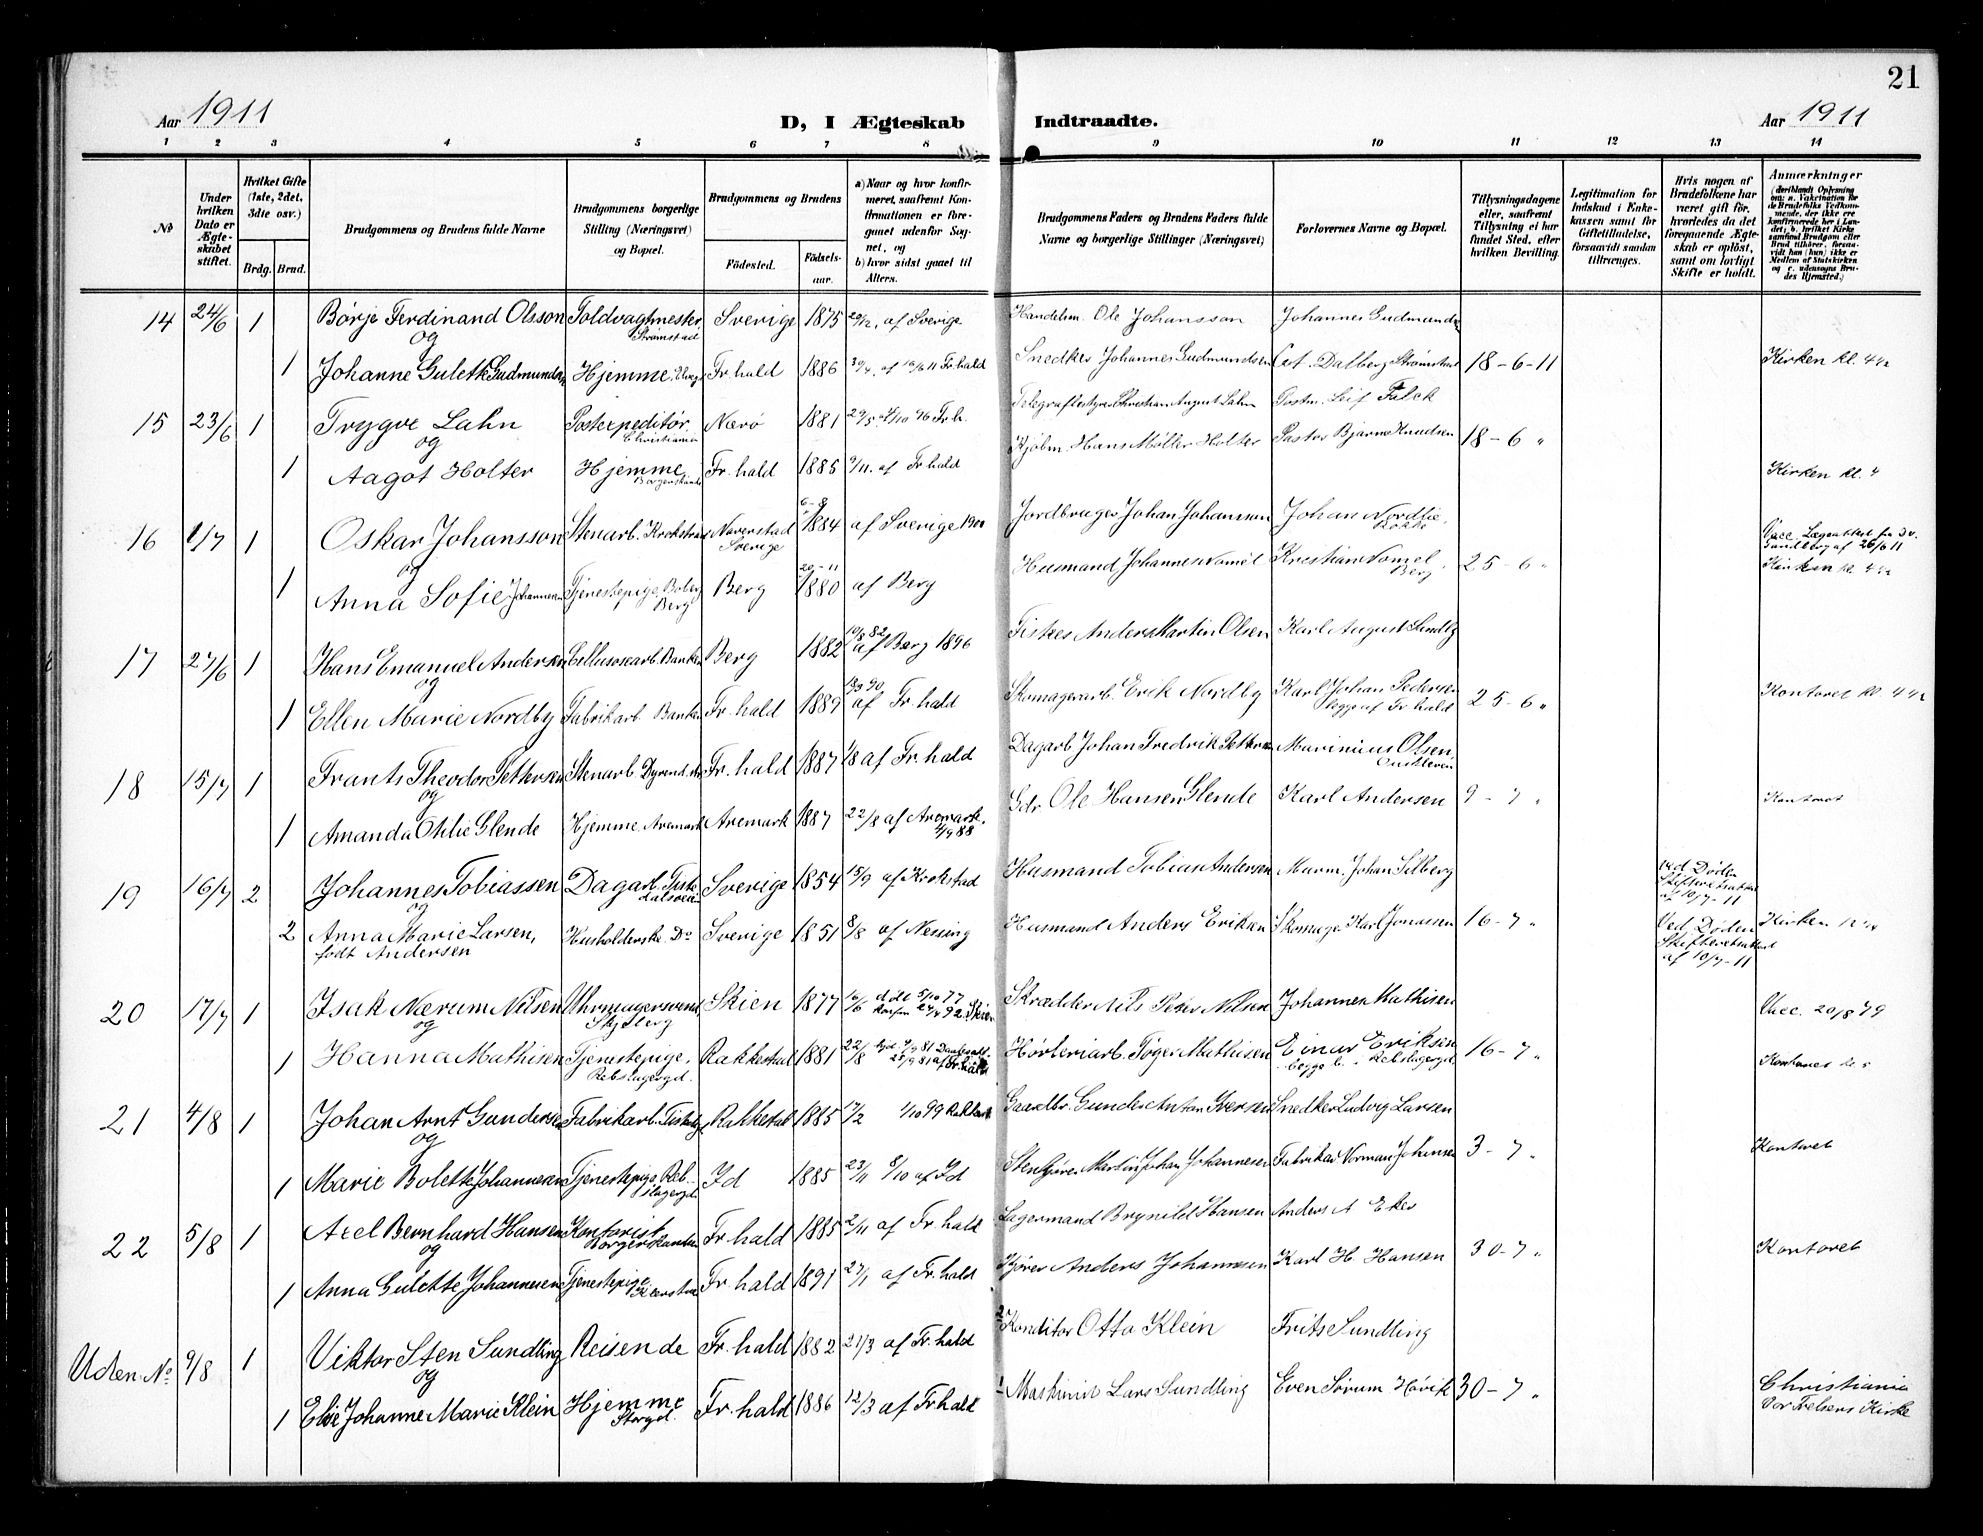 21
Aar 1911
D, I Ægteskab Indtraadte.
Aar 1911
1 2 3 4 5 6 7 8 9 10 11 12 13 14
№
Under hvilken Dato er Ægteskabet stiftet.
Hvilket Gifte (1ste, 2det, 3die osv.)
Brdg. Brud.
Brudgommens og Brudens fulde Navne
Brudgommens borgerlige Stilling (Næringsvei) og Bopæl.
Brudgommens og Brudens
Födested. Födsels-aar.
a) Naar og hvor konfirmeret, saafremt Konfirmationen er foregaaet udenfor Sognet, og
b) hvor sidst gaaet til Alters.
Brudgommens Faders og Brudens Faders fulde Navne og borgerlige Stillinger (Næringsvei)
Forlovernes Navne og Bopæl.
Tillysningsdagene eller, saafremt Tillysning ei har fundet Sted, efter hvilken Bevilling.
Legitimation for Indskud i Enkekassen samt for Giftetilladelse, forsaavidt saadan tiltrænges.
Hvis nogen af Brudefolkene har været gift för, hvorledes da det foregaaende Ægteskab er oplöst, samt om lovligt Skifte er holdt.
Anmærkninger
14 24/6 1 Børje Ferdinand Olsson Toldvagtmester Strømstad Sverige 1875 af Sverige Handelsm. Ole Johansson Johannes Gudmundsen
og
1 Johanne Gulette Gudmundsen Hjemme Fr.hald 1886 Fr.hald Snedker Johannes Gudmundsen Dalberg Strømstad 18-6-11 Kirken kl. 4½
15 23/6 1 Trygve Lahn Postexpeditør. Christiania Nærö 1881 29/5 Fr.h. Telegrafbestyrer Christian August Lahn Postm. Leif Falck
og
1 Aagot Holter Hjemme Borgerskansen Fr.hald 1885 9/11. af Fr.hald Kjøbm. Hans Møller Holter Pastor Bjarne Knudsen 18-6 " Kirken kl. 4
16 1/7 1 Oskar Johansson Stenarb. Krokstrand Naverstad Sverige 6-8 1884 af Sverige 1900 Jordbruger Johan Johansson Johan Nordlie, Vacc. Lægeattest fra Dr. Sundberg af 26/6 11
og
1 Anna Sofie Johannesen Tjenestepige, Berg Berg 20-11 1880 af Berg Husmand Johannes Nomel Kristian Nomel Berg 25-6 " Kirken kl. 4½
17 27/6 1 Hans Emanuel Andersen Cellulosearb. Banken Berg 1882 19/8 82 af Berg 1896 Fisker Anders Martin Olsen Karl August Sundby
og
1 Ellen Marie Nordby Fabrikarb. Banken Fr.hald 1889 af Fr.hald Skomagerarb. Erik Nordby Karl Johan Pedersen begge af Fr.hald 25-6 " Kontoret kl. 4½
18 15/7 1 Frants Theodor Pettersen Stenarb. Dyrend. Fr.hald 1887 1/8 af Fr.hald Dagarb. Johan Fredrik Pettersen Marinius Olsen
og
1 Amanda Othlie Glende Hjemme, Aremark Aremark 1887 22/8 af Aremark. Gdr. Ole Hansen Glende Karl Andersen 9-7 " Kontoret
19 16/7 2 Johannes Tobiassen Dagarb. Sverige 1854 15/9 af Krokstad Husmand Tobias Andersen Murm. Johan Silberg ved Døden Skifteretsattest af 10/7-11
og
2 Anna Marie Larsen, født Andersen Husholderske Do Sverige 1851 8/8 af Nesing Husmand Anders Eriksen Skomager Karl Jonassen 16-7 " Ved Døden Skifteretsattest af 10/7-11 Kirken
20 17/7 1 Isak Nærum Nilsen Uhrmagersvend, Skjeberg Skien 1877 16/6 døbt 5/10 77 Konfirm. 92 Skien Skrædder Nils Peder Nilsen Johannes Mathisen Vacc. 20/8 79
og
1 Hanna Mathisen Tjenestepige, Rebslagergd. Rakkestad 1881 22/8 af Fr.hald Høvleriarb. Tøger Mathisen Einar Eriksen begge b. Rebslagergd. 16-7 " Kontoret kl. 5
21 4/8 1 Johan Arnt Gundersen Fabrikarb. Rakkestad 1885 17/2 1/10 99 Rakkestad Gaardbr. Gunder Anton Iversen Snedker Ludvig Larsen
og
1 Marie Bolette Johannesen Tjenestepige, Rebslagergd Id 1885 23/11 8/10 af Id Martin Johan Johannesen Fabrikar Norman Johansen 3-7 " Kontoret
22 5/8 1 Axel Bernhard Hansen Kontorist Borgerskansen Fr.hald 1885 2/11 af Fr.hald Lagermand Brynild Hansen Anders A Eker
og
1 Anna Gulette Johannesen Tjenestepige Fr.hald 1891 27/1 af Fr.hald Kjører Anders Johannesen Karl H. Hansen 30-7 " Kontoret
Uden № 9/8 1 Viktor Sten Sundling Reisende Fr.hald 1882 21/3 af Fr.hald 2 Konditor Otto Klein Frits Sundling
og
1 Elise Johanne Marie Klein Hjemme Storgd. Fr.hald 1886 12/3 af Fr.hald 1 Maskinist Lars Sundling Even Sørum Høvik 30-7 " Christiania Vor Frelsers Kirke